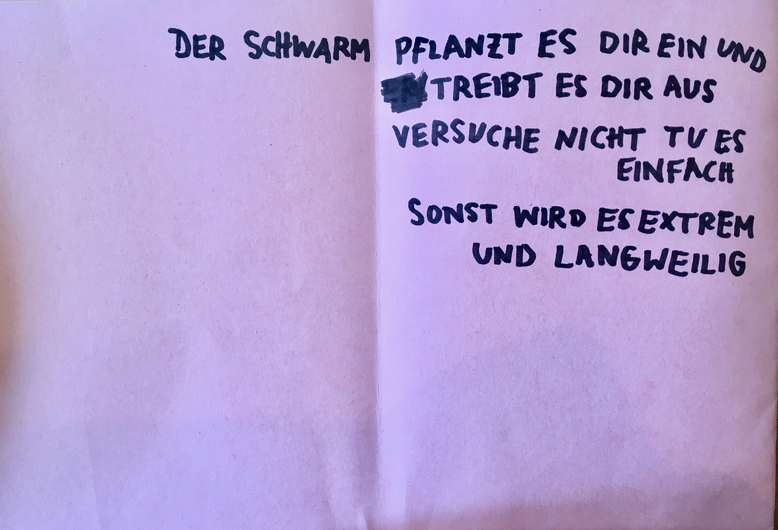 DER SCHWARM PFLANZT ES DIR EIN UND
TREIBT ES DIR AUS
VERSUCHE NICHT TU ES
EINFACH
SONST WIRD ES EXTREM
UND LANGWEILIG